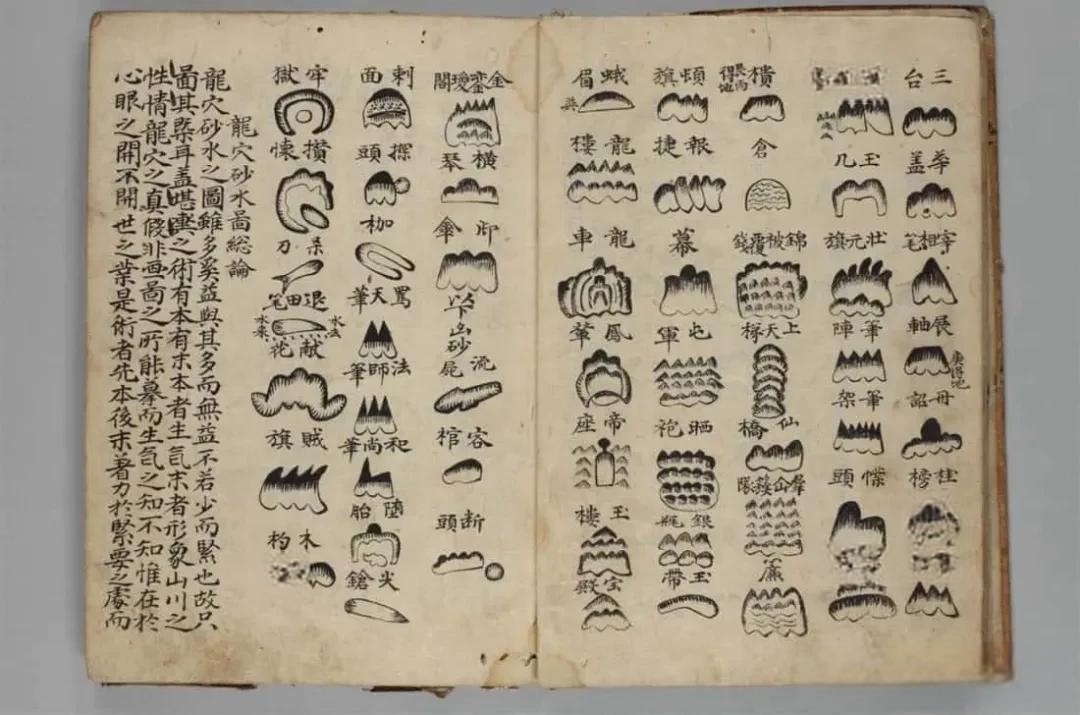 三台
華盖
宰相笔
展軸
庚得地
詔
挂榜
玉几
壮元旗
筆陣
筆架
幞頭
倉
錦被覆錢
上天梯
仙橋
簾
頓旗
報捷
幕
屯軍
晒袍
銀瓶
玉帶
蛾眉
龍樓
龍車
鳳輦
帝座
玉樓
宝殿
金鑾閣
横琴
御傘
以下凶砂
流屍
客棺
断頭
刺面
探頭
枷
罵天筆
法師筆
和尚筆
墮胎
尖鎗
牢獄
攅懐
杀刀
退田笔
水去
水来
献花
賊旗
木杓
龍穴砂水啚総論
龍穴砂水之圖雖多奚益與其多而無益不若少而緊也故只
啚其槩耳盖堪輿之術有本有末本者生氣末者形象山川之
性情龍穴之真假非画啚之所能摹而生氣之知不知惟在於
心眼之開不開世之業是術者先本後末着力於緊要之處而